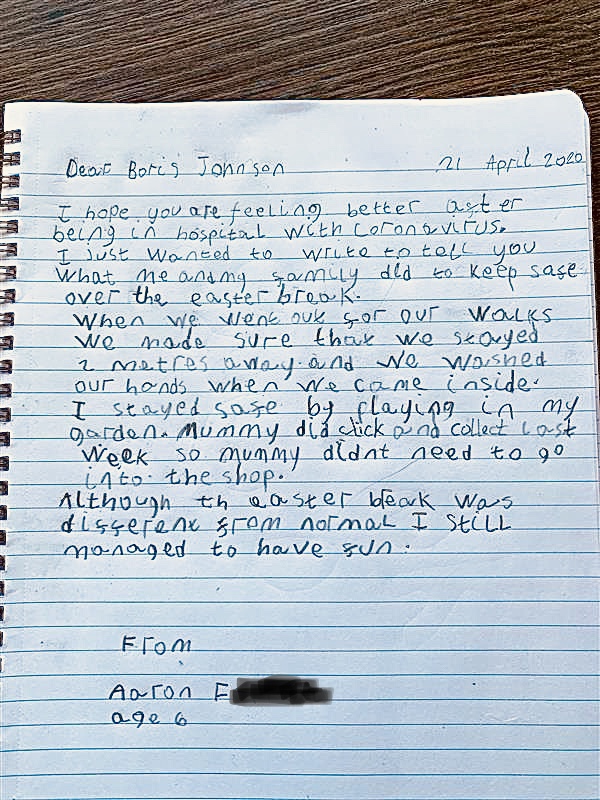 Dear Boris Johnson 21 April 2020
I hope you are feeling better after
being in hospital with coronavirus.
I just wanted to write to tell you
what me and my family did to keep safe
over the easter break.
When we went out for our walks
we made sure that we stayed
2 metres away. and we washed
our hands when we came inside.
I stayed safe by playing in my
garden. Mummy did click and collect last
week so mummy didnt need to go
into the shop.
Although th easter break was
different from normal I still
managed to have fun.
From
Aaron F
age 6